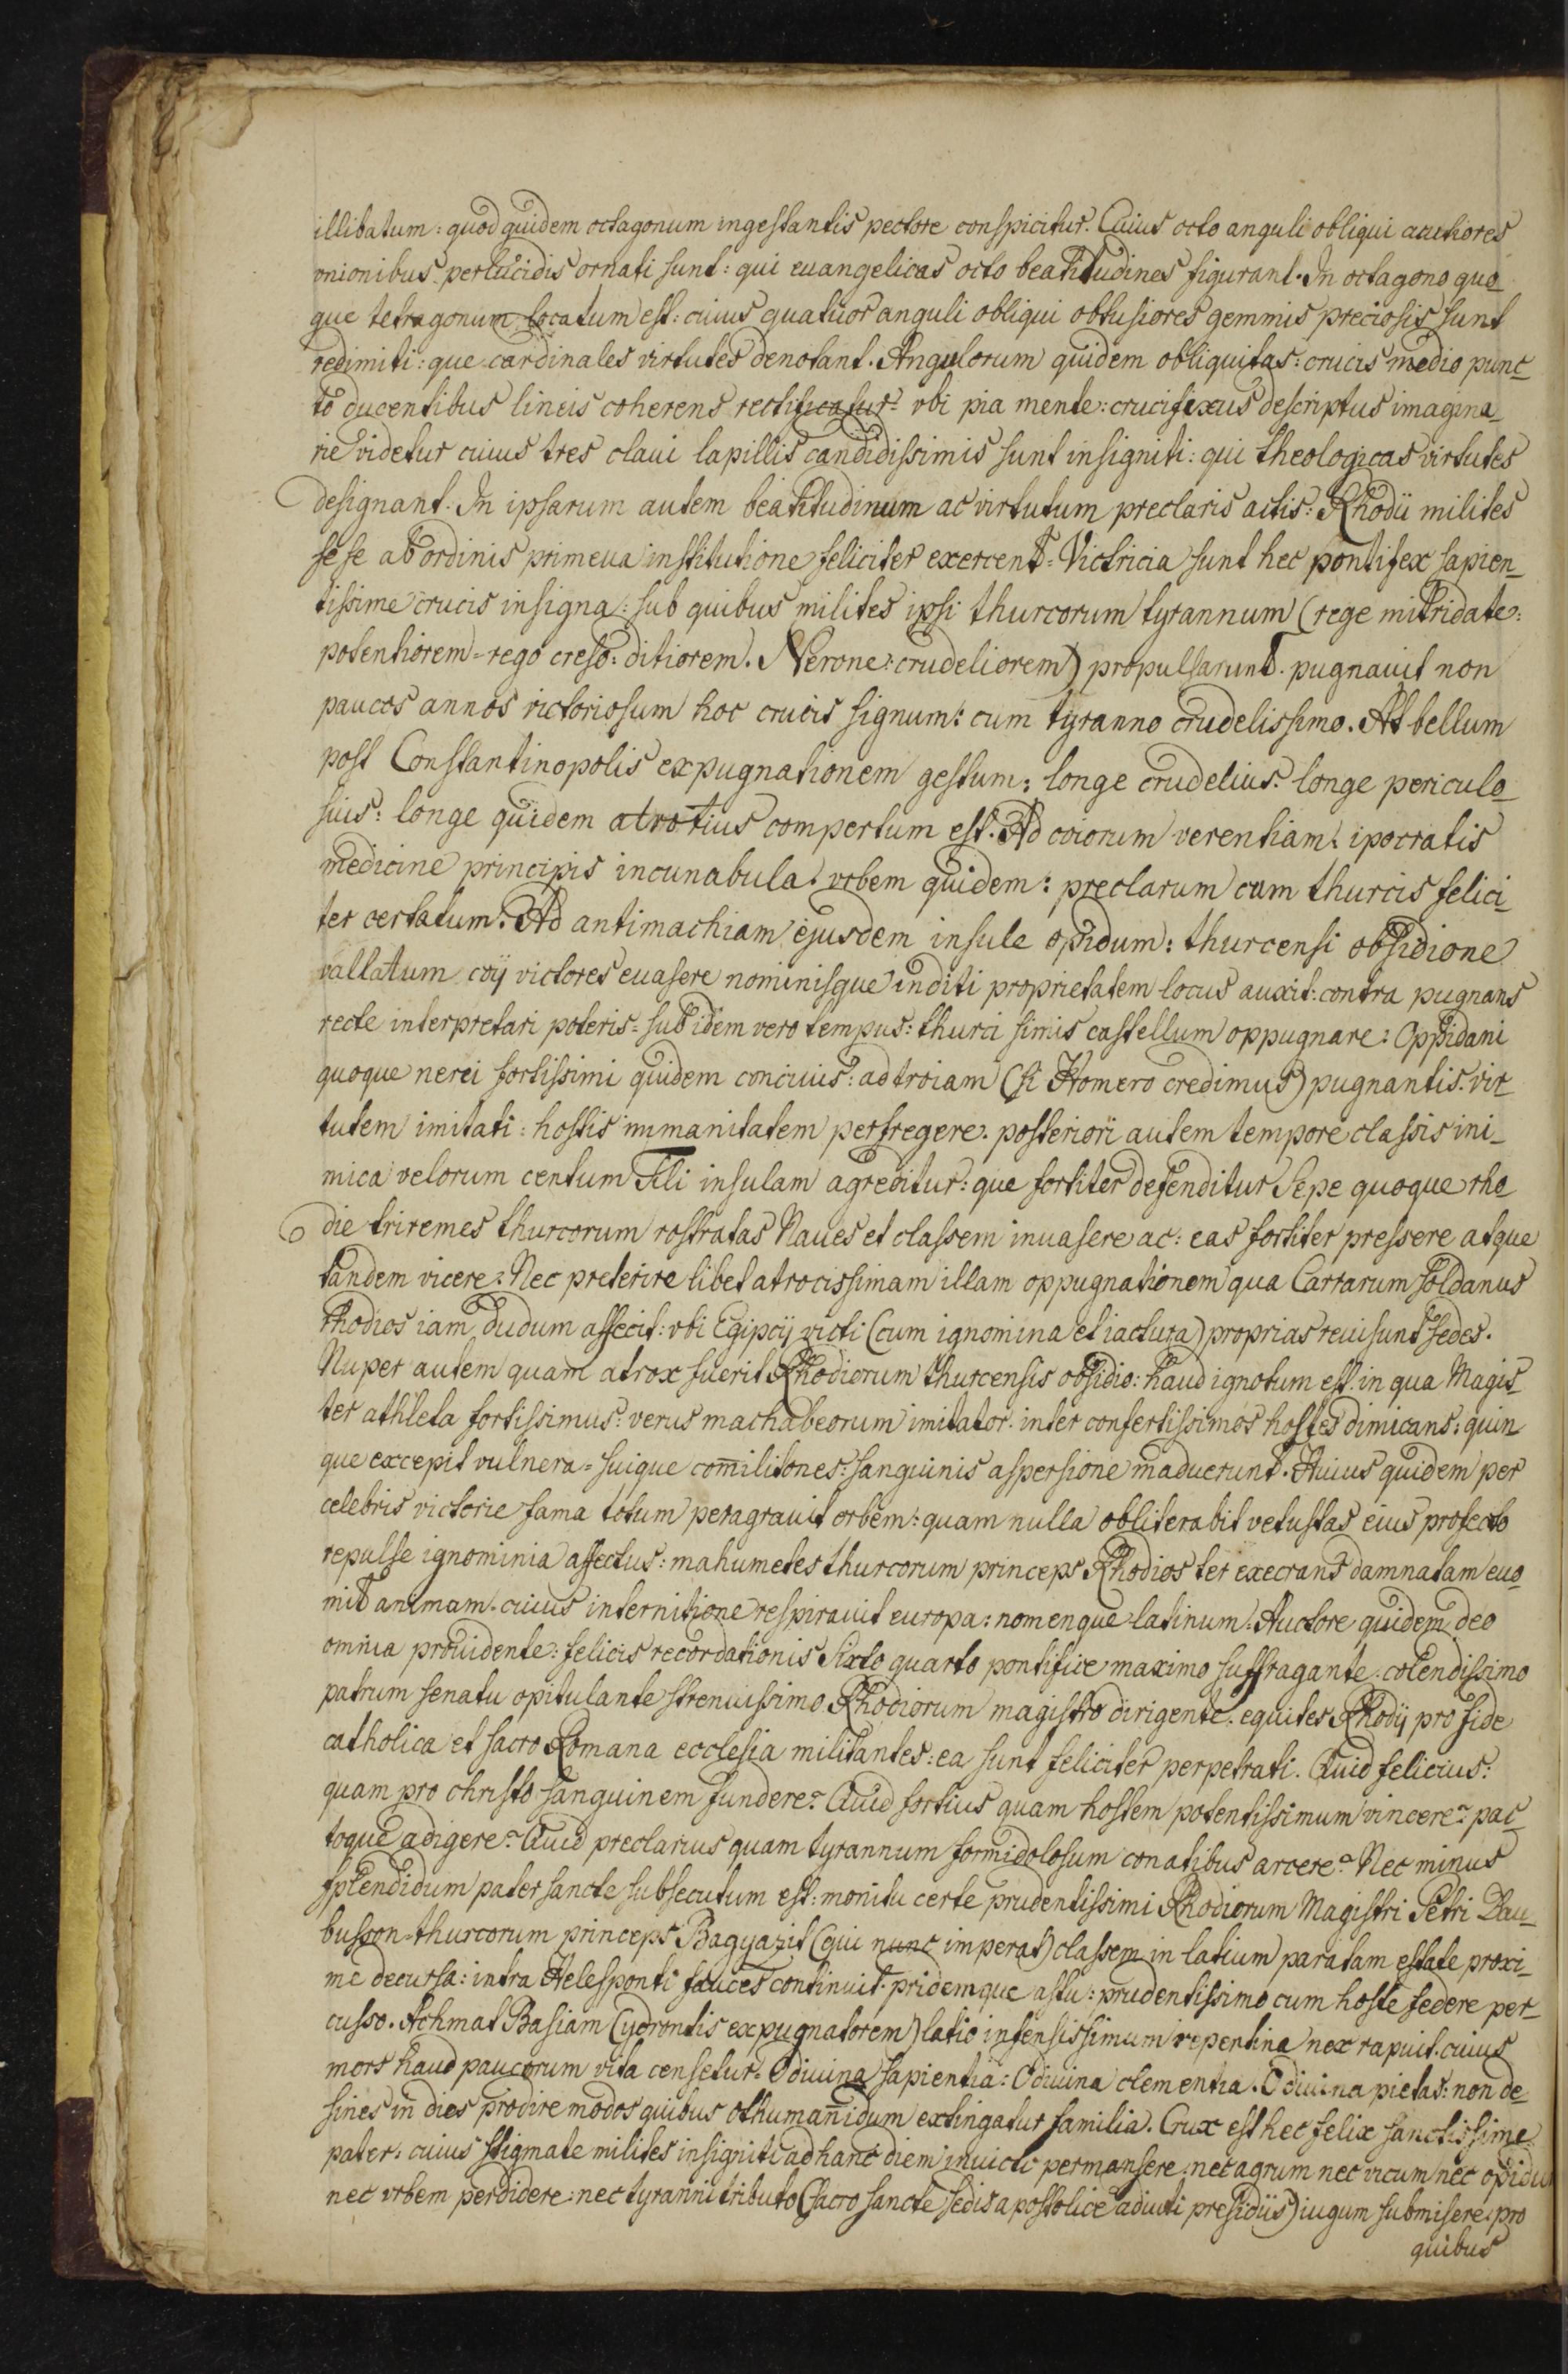 illibatum: quod quidem octagonum ingestantis pectore conspicitur. Cuius octo anguli obliqui acutiores
vnionibus perlucidis ornati sunt: qui euangelicas octo beatitudines figurant. In octagono quo_
que tetragonum locatum est: cuius quatuor anguli obliqui obtusiores gemmis preciosis sunt
redimiti: que cardinales virtutes denotant. Angulorum quidem obliquitas: crucis medio punc_
to ducentibus lineis coherens rectificatur: vbi pia mente: crucifixus descriptus imagina_
rie videtur cuius tres claui lapillis candidissimis sunt insigniti: qui theologicas virtutes
designant. In ipsarum autem beatitudinum ac virtutum preclaris actis: Rhodii milites
sese ab ordinis primeua institutione feliciter exercent. Victricia sunt hec pontifex sapien_
tissime crucis insigna: sub quibus milites ipsi thurcorum tyrannum (rege mitridate:
potentiorem=rego creso: ditiorem. Nerone: crudeliorem) propulsarunt. pugnauit non
paucos annos victoriosum hoc crucis signum: cum tyranno crudelissimo. At bellum
post Constantinopolis expugnationem gestum: longe crudelius: longe periculo_
sius: longe quidem atrotius compertum est. Ad coiorum verentiam: ipocratis
medicine principis incunabula: vrbem quidem: preclarum cum thurcis felici_
ter certatum. Ad antimachiam ejusdem insule opidum: thurcensi obsidione
vallatum coij victores euasere nominisque inditi proprietatem locus auxit: contra pugnans
recte interpretari poteris=sub idem vero tempus: thurci simis castellum oppugnare: Oppidani
quoque nerei fortissimi quidem conciuis: ad troiam (si Homero credimus) pugnantis vir_
tutem imitati: hostis immanitatem perfregere. posteriori autem tempore classis ini_
mica velorum centum Tili insulam agreditur: que fortiter defenditur Sepe quoque rho
die triremes thurcorum rostratas Naues et classem inuasere ac: eas fortiter pressere atque
tandem vicere: Nec preterire libet atrocissimam illam oppugnationem qua Carrarum soldanus
rhodios iam dudum affecit: vbi Egipcij victi (cum ignomina et iactura) proprias reuisunt sedes.
Nuper autem quam atrox fuerit Rhodiorum thurcensis obsidio: haud ignotum est: in qua Magis_
ter athleta fortissimus: verus machabeorum imitator. inter confertissimos hostes dimicans: quin
que excepit vulnera=suique com̄ilitones: sanguinis aspersione maduerunt. Huius quidem per
celebris victorie fama totum peragrauit orbem: quam nulla obliterabit vetustas eius profecto
repulse ignominia affectus: mahumetes thurcorum princeps Rhodios ter execrans damnatam euo_
mit animam. cuius internitione respirauit europa: nomenque latinum: Auctore quidem deo
omnia prouidente: felicis recordationis Sixto quarto pontifice maximo suffragante: colendissimo
patrum senatu opitulante strenuissimo Rhodiorum magistro dirigente: equites Rhodij pro fide
catholica et sacro Romana ecclesia militantes: ea sunt feliciter perpetrati. Quid felicius:
quam pro christo sanguinem fundere? Quid fortius quam hostem potentissimum vincere? pac_
toque adigere? Quid preclarius quam tyrannum formidolosum conatibus arcere? Nec minus
splendidum pater sancte subsecutum est: monitu certe prudentissimi Rhodiorum Magistri Petri Dau_
busson=thurcorum princeps Bagyazit (qui nunc imperat) classem in latium paratam estate proxi_
me decursa: intra Helesponti fauces continuit. pridemque astu: prudentissimo cum hoste federe per_
cusso. Achmat Basiam (ydrontis expugnatorem) latio infensissimum repentina nex rapuit. cuius
mors haud paucorum vita censetur. O diuina sapientia: O diuina clementia. O diuina pietas: non de
sines in dies prodire modos quibus othuman̄idum extingatur familia. Crux est hec felix sanctissime
pater: cuius stigmate milites insigniti ad hanc diem inuicti permansere: nec agrum nec vicum nec opidu
nec vrbem perdidere: nec tyranni tributo (sacro sancte sedis apostolice adiuti presidiis) iugum submisere: pro
quibus